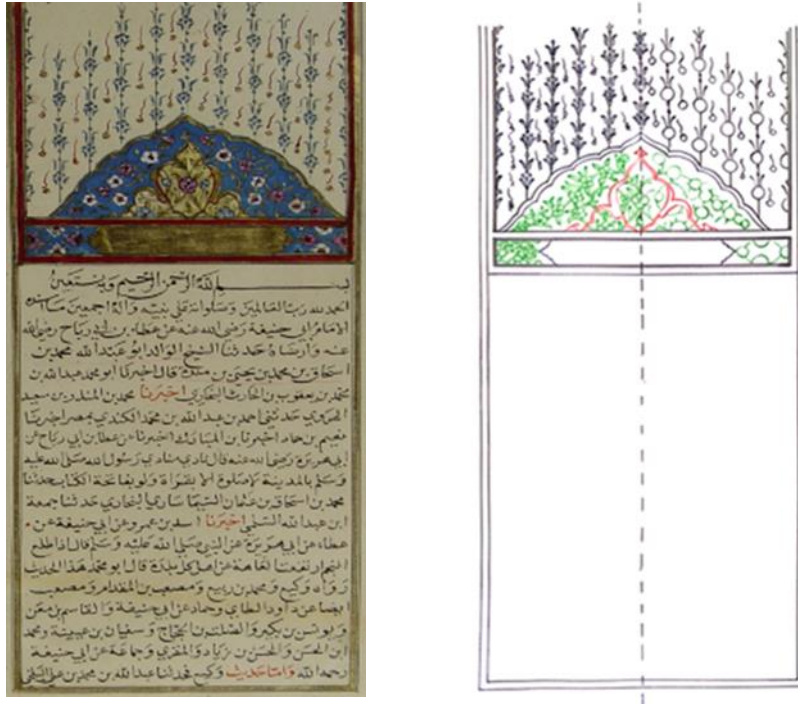 بسم الله الرحمن الرحيم وبه نستعين
الحمد لله رب العالمين وصلواته على نبيه وآله اجمعين ما اسنده
الامام ابي حنيفة رضى الله عنه عن عطاء بن ابي رباح رضى الله
عنه وارضاه حدثنا الشيخ الوالد ابو عبد الله محمد بن
اسحاق بن محمد بن يحيى بن مندة قال اخبرنا ابو محمد عبد الله بن
محمد بن يعقوب بن الحارث البخاري اخبرنا محمد بن المنذر بن سعيد
الهروي حدثني احمد بن عبد الله بن محمد الكندي بمصر اخبرنا
نعيم بن حماد اخبرنا بن المبارك اخبرنا عن عطا بن ابي رباح عن
ابي هريرة رضى الله عنه قال نادي منادي رسول الله صلى الله عليه
وسلم بالمدينة لا صلوة الا بقراة ولو بفاتحة الكتاب حدثنا
محمد بن اسحاق بن عثمان البخاري حدثنا جمعة
ابن عبد الله السلمى اخبرنا اسد بن عمرو عن ابي حنيفة عن
عطاء عن ابي هريرة عن النبي صلى الله عليه وسلم قال اذا طلع
النجم ارتفعت العاهة عن اهل كل بلدة قال ابو محمد هذا الحديث
رواه وكيع ومحمد بن ربيع ومصعب بن المقدام ومصعب
ايضا عن داود الطاي وحماد عن ابي حنيفة والقاسم بن معن
ويونس بن بكير والصلت بن الحجاج وسفيان بن عيينة ومحمد
ابن الحسن والحسن بن زياد والمقري وجماعة عن ابي حنيفة
رحمه الله واما حديث وكيع فحدثنا عبد الله بن محمد بن علي البلخي